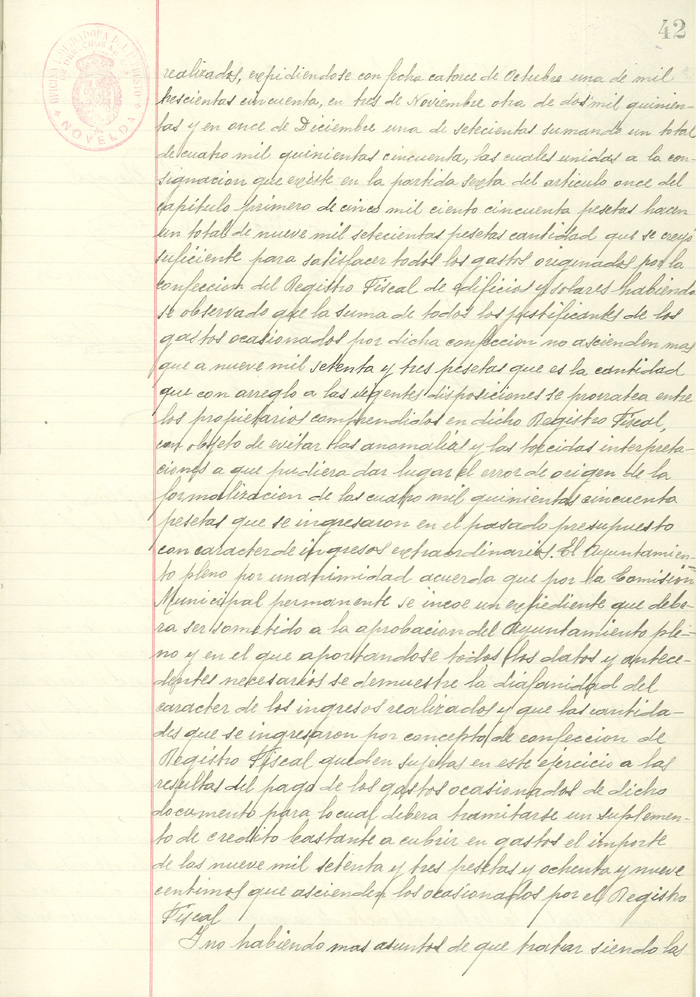 42
NOVELDA
realizados, expidiendose con fecha catorce de Octubre una de mil
trescientas cincuenta, en tres de Noviembre otra de dos mil quinien-
tas y en once de Diciembre una de setecientas sumando un total
de cuatro mil quinientas cincuenta, las cuales unidas a la con-
signacion que existe en la partida sexta del articulo once del
capitulo primero de cinco mil ciento cincuenta pesetas hacen
un total de nueve mil setecientas pesetas cantidad que se creyó
suficiente para satisfacer todos los gastos originados por la
confeccion del Registro Fiscal de edificios y solares habiendo
se observado que la suma de todos los justificantes de los
gastos ocasionados por dicha confeccion no ascienden mas
que a nueve mil setenta y tres pesetas que es la cantidad
que con arreglo a las vigentes disposiciones se prorratea entre
los propietarios comprendidos en dicho Registro Fiscal,
con objeto de evitar las anomalias y las torcidas interpreta-
ciones a que pudiera dar lugar el error de origen de la
formalizacion de las cuatro mil quinientas cincuenta
pesetas que se ingresaron en el pasado presupuesto
con caracter de ingresos extraordinarios. El Ayuntamien-
to pleno por unanimidad acuerda que por la Comisión
Municipal permanente se incoe un expediente que debe-
ra ser sometido a la aprobacion del Ayuntamiento ple-
no y en el que aportandose todos los datos y antece-
dentes necesarios se demuestre la diafanidad del
caracter de los ingresos realizados y que las cantida-
des que se ingresaron por concepto de confeccion de
Registro Fiscal queden sujetas en este ejercicio a las
resultas del pago de los gastos ocasionados de dicho
documento para lo cual debera tramitarse un suplemen-
to de credito bastante a cubrir en gastos el importe
de las nueve mil setenta y tres pesetas y ochenta y nueve
centimos que ascienden los ocasionados por el Registro
Fiscal
Y no habiendo mas asuntos de que tratar siendo las